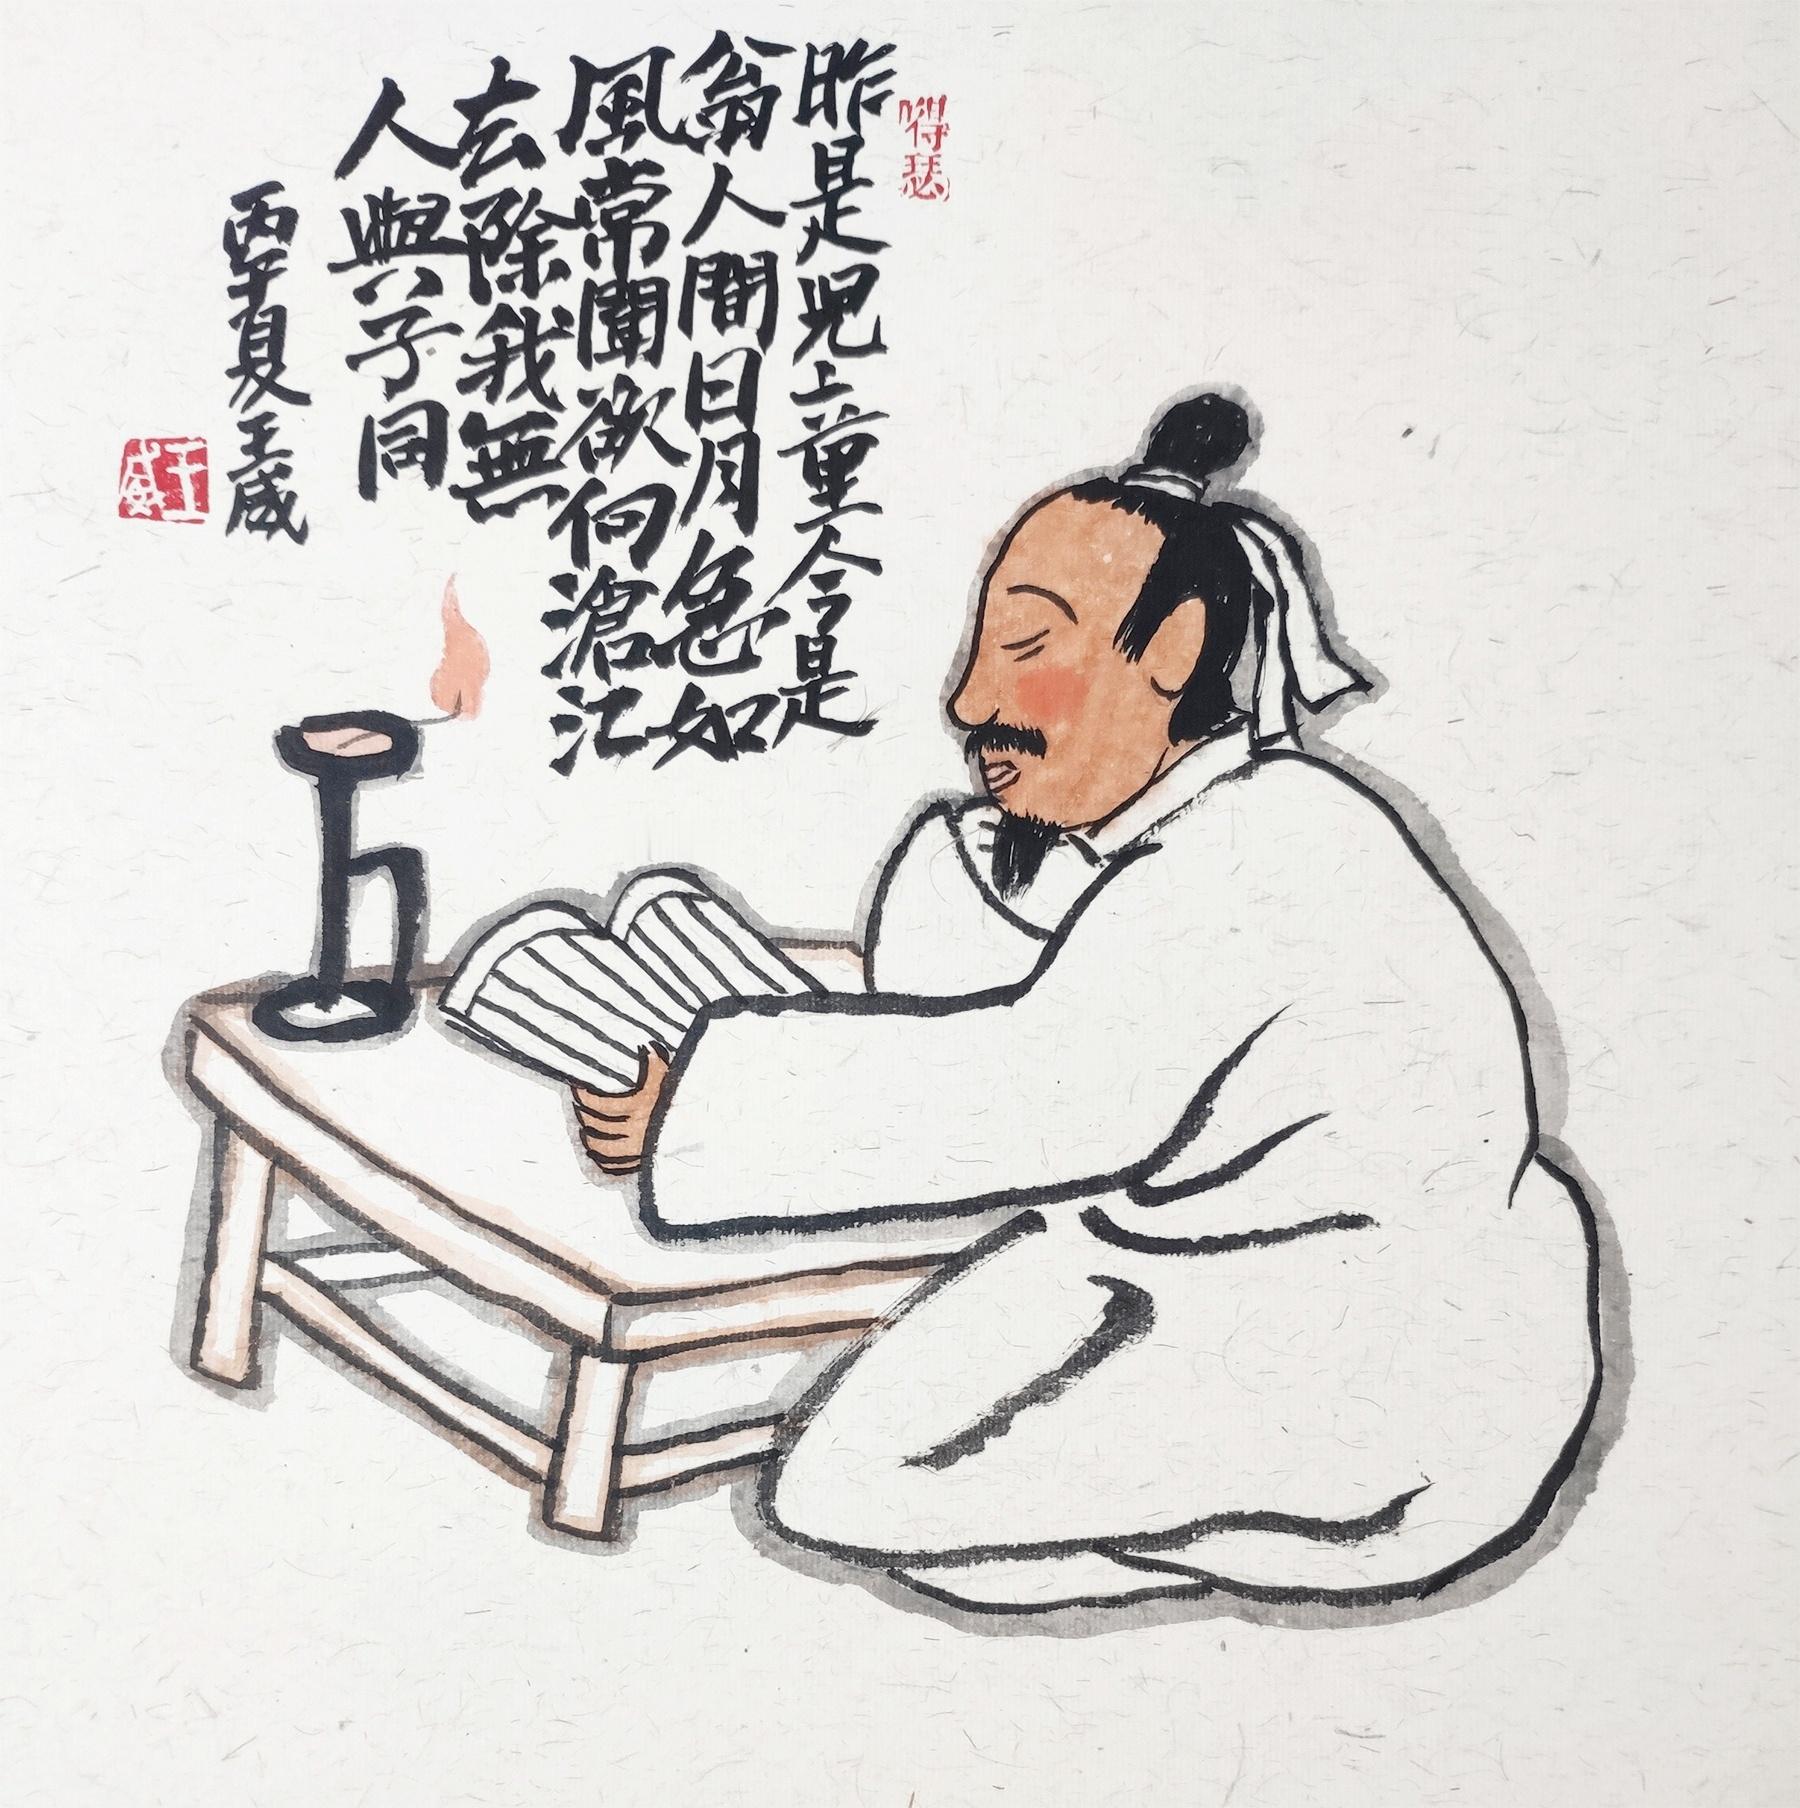 得瑟
昨是児童今是
翁人間日月急如
風常聞欲向滄江
去除我無
人與子同
丙午夏王威
王威